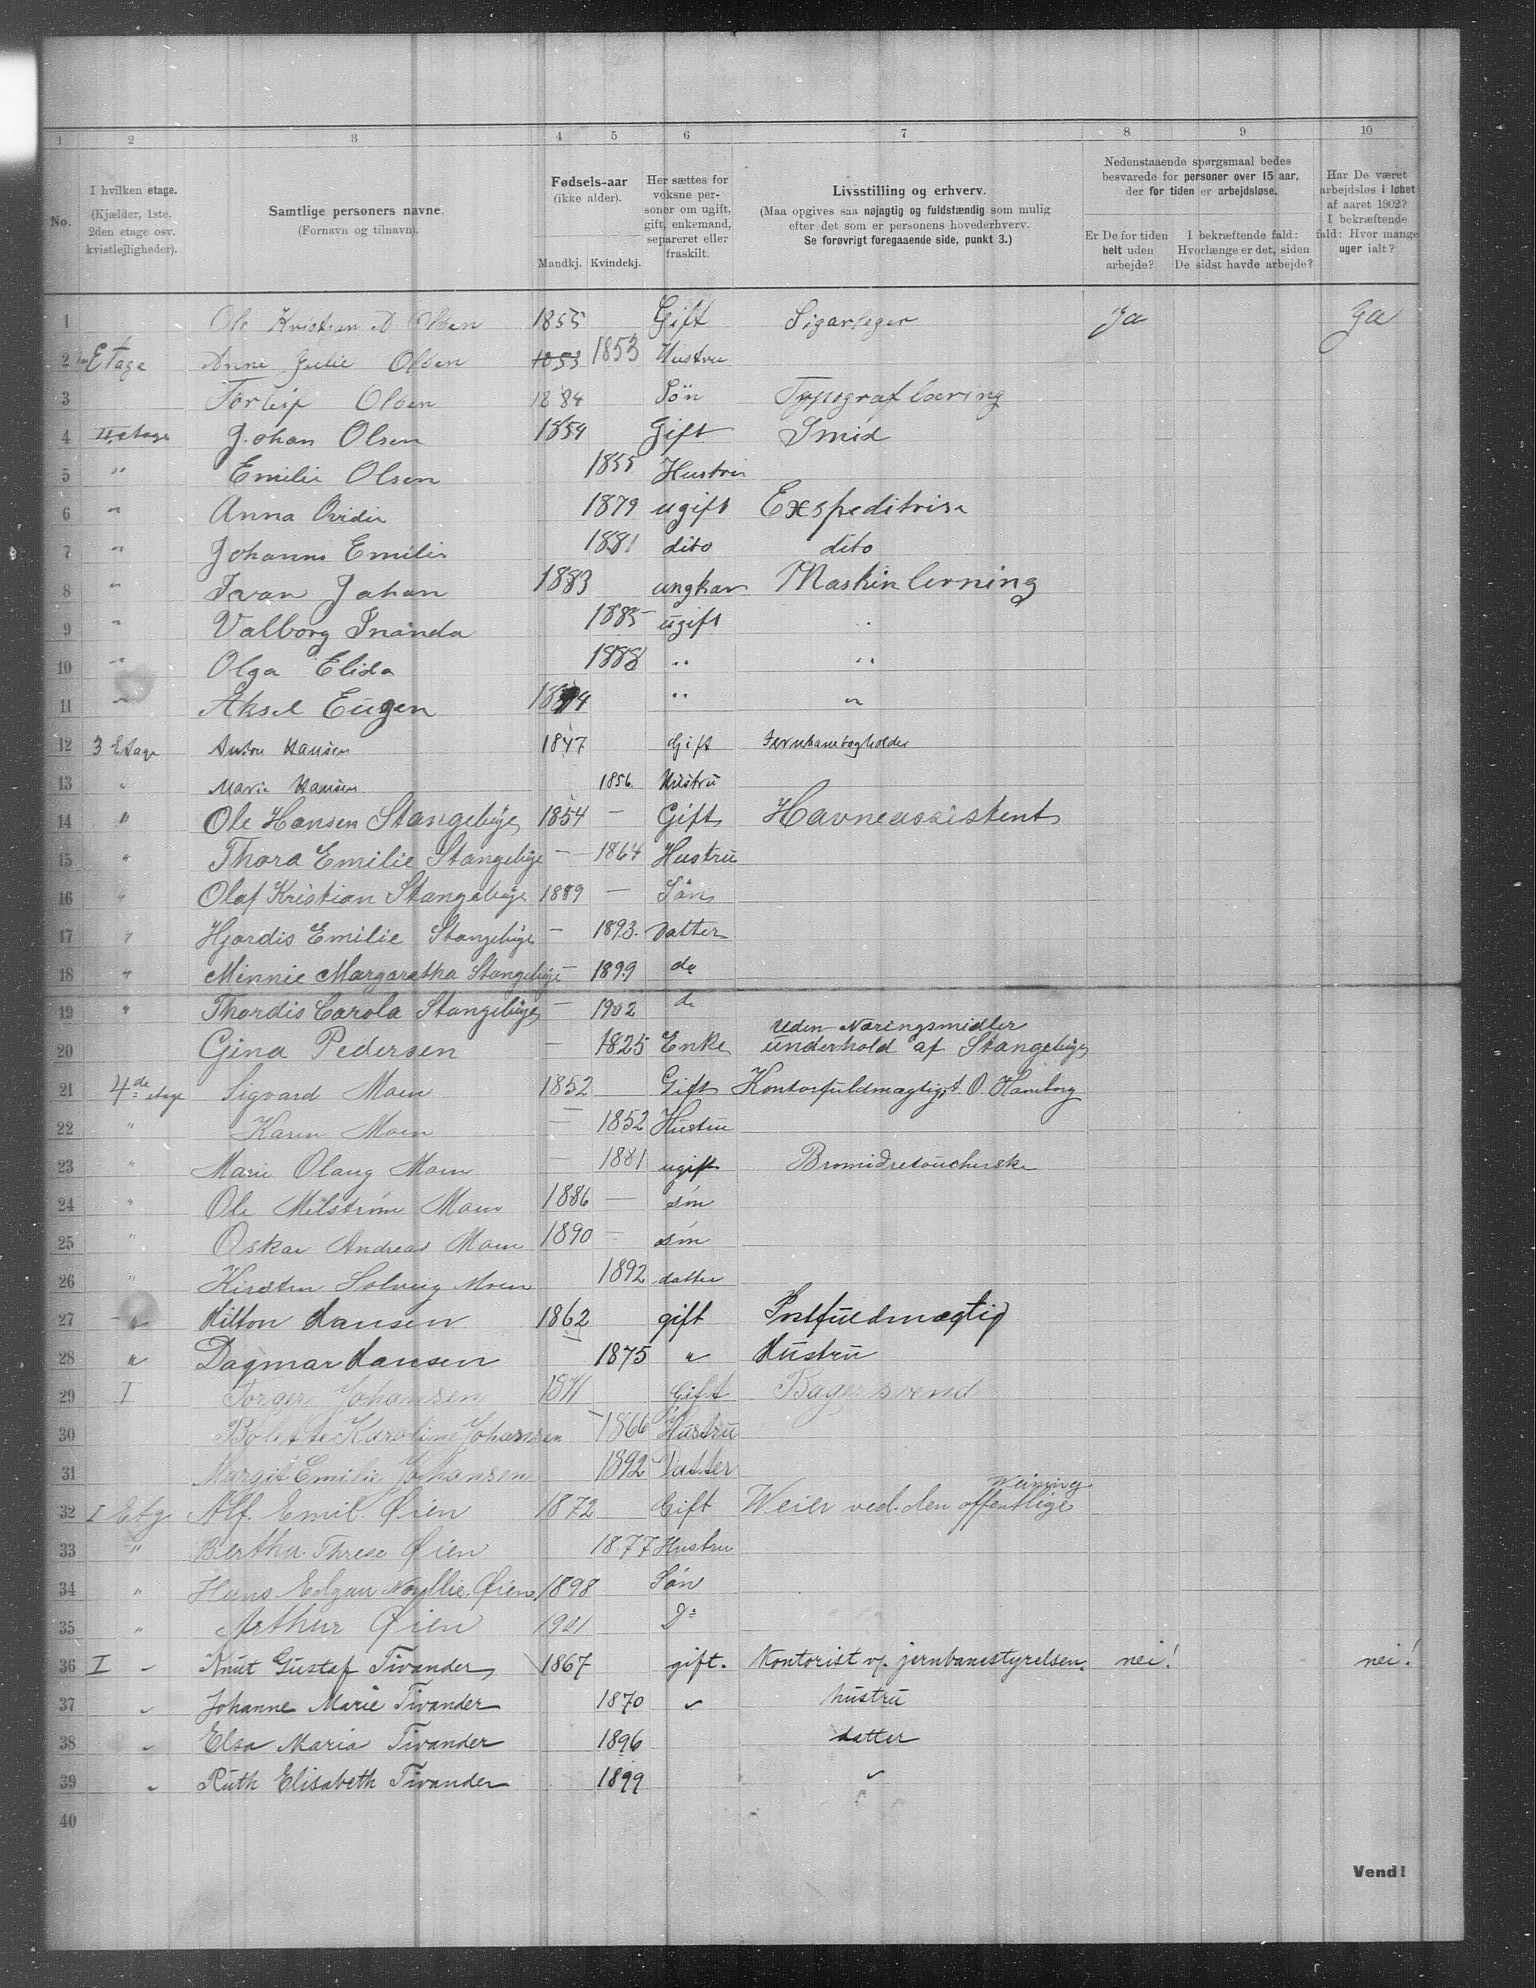 1 2 3 4 5 6 7 8 9 10
No.
I hvilken etage.
(Kjælder, 1ste.
2den etage osv.
kvistlejligheder).
Samtlige personers navne.
(Fornavn og tilnavn).
Fødsels-aar
(ikke alder).
Mandkj. Kvindekj.
Her sættes for
voksne per-
soner om ugift,
gift, enkemand,
separeret eller
fraskilt.
Livsstilling og erhverv.
(Maa opgives saa nøjagtig og fuldstændig som mulig
efter det som er personens hovederhverv.
Se forøvrigt foregaaende side, punkt 3.)
Nedenstaaende spørgsmaal bedes
besvarede for personer over 15 aar,
der for tiden er arbejdsløse.
Er De for tiden
helt uden
arbejde?
I bekræftende fald:
Hvorlænge er det, siden
De sidst havde arbejde?
Har De været
arbejdsløs i løbet
af aaret 1902?
I bekræftende
fald: Hvor mange
uger ialt?
1 Ole Kristian A Olsen 1855 Gift Ja Ja
2 Etage Anne Julie Olsen 1853 1853 Hustru
3 Torleif Olsen 1884 Søn Typograf læring
4 II etage Johan Olsen 1854 Gift Smid
5 " Emilie Olsen 1855 Hustru
6 " Anna 1879 ugift Expeditrise
7 " Johanne Emilie 1881 dito dito
8 " Ivan Johan 1883 ungkar Maskinlerning
9 " Valborg Inanda 1885 ugift "
10 " Olga Elida 1888 " "
11 " Aksel Eugen 1894 " "
12 3 Etage Anton Hansen 1847 Gift Jernbanebogholder
13 " Marie Hansen 1856 Hustru
14 " Ole Hansen Stangebye 1854 — Gift Havneassistent
15 " Thora Emilie Stangebye — 1864 Hustru
16 " Olaf Kristian Stangebye 1889 — Søn
17 " Hjørdis Emilie Stangebye — 1893. Datter
18 " Minnie Margaretha Stangebye — 1899 do
19 " Thordis Carola Stangebye — 1902 d
20 Gina Pedersen — 1825 Enke uden Næringsmidler
underhold af Stangebye
21 4de etage Sigvard Moen 1852 Gift Kontorfuldmægtig
22 " Karen Moen — 1852 Hustru
23 " Marie Olaug Moen — 1881 ugift Bromidretoucherske
24 " Ole Milstrøm Moen 1886 — søn
25 " Oskar Andreas Moen 1890 — søn
26 " Kirsten Solveig Moen 1892 datter
27 " Hilton Hansen 1862 gift Postfuldmægtig
28 " Dagmar Hansen 1875 " Hustru
29 I Torger Johansen 1871 Gift Bagersvend
30 Bolette Karoline Johansen 1866 Hustru
31 Margit Emilie Johansen 1892 Datter
32 I Etg Alf. Emil. Øien 1872 Gift Weier ved. den offentlige Weining
33 " Bertha Threse Øien 1877 Hustru
34 " Hans Edgar Øien 1898 Søn
35 " Arthur Øien 1901 Do
36 I " Knut Gustaf Tivander 1867 gift. Kontorist v/. jernbanestyrelsen. nei! nei!
37 " Johanne Marie Tivander 1870 " hustru
38 " Elsa Maria Tivander 1896 datter
39 " Ruth Elisabeth Tivander 1899 "
40
Vend!